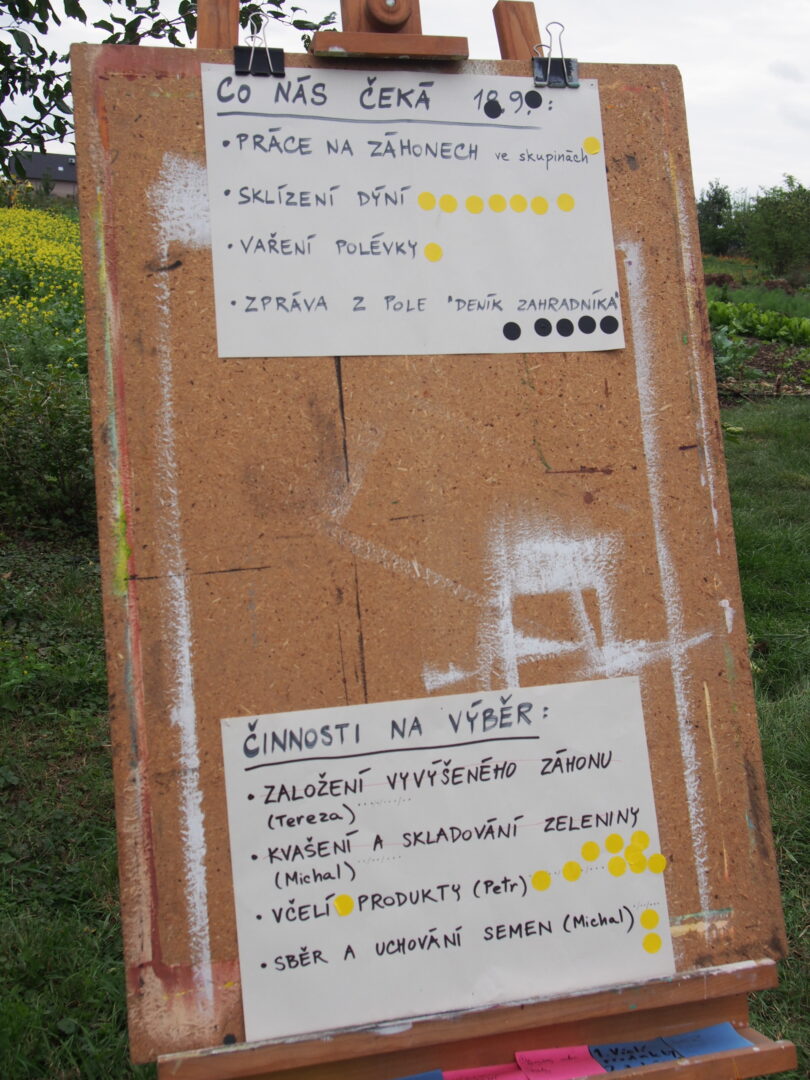 CO NÁS ČEKÁ 18.9.:
• PRÁCE NA ZÁHONECH ve skupinách
• SKLÍZENÍ DÝNÍ
• VAŘENÍ POLÉVKY
• ZPRÁVA Z POLE "DENÍK ZAHRADNÍKA"
ČINNOSTI NA VÝBĚR:
• ZALOŽENÍ VYVÝŠENÉHO ZÁHONU
(Tereza)
• KVAŠENÍ A SKLADOVÁNÍ ZELENINY
(Michal)
• VČELÍ PRODUKTY (Petr)
• SBĚR A UCHOVÁNÍ SEMEN (Michal)